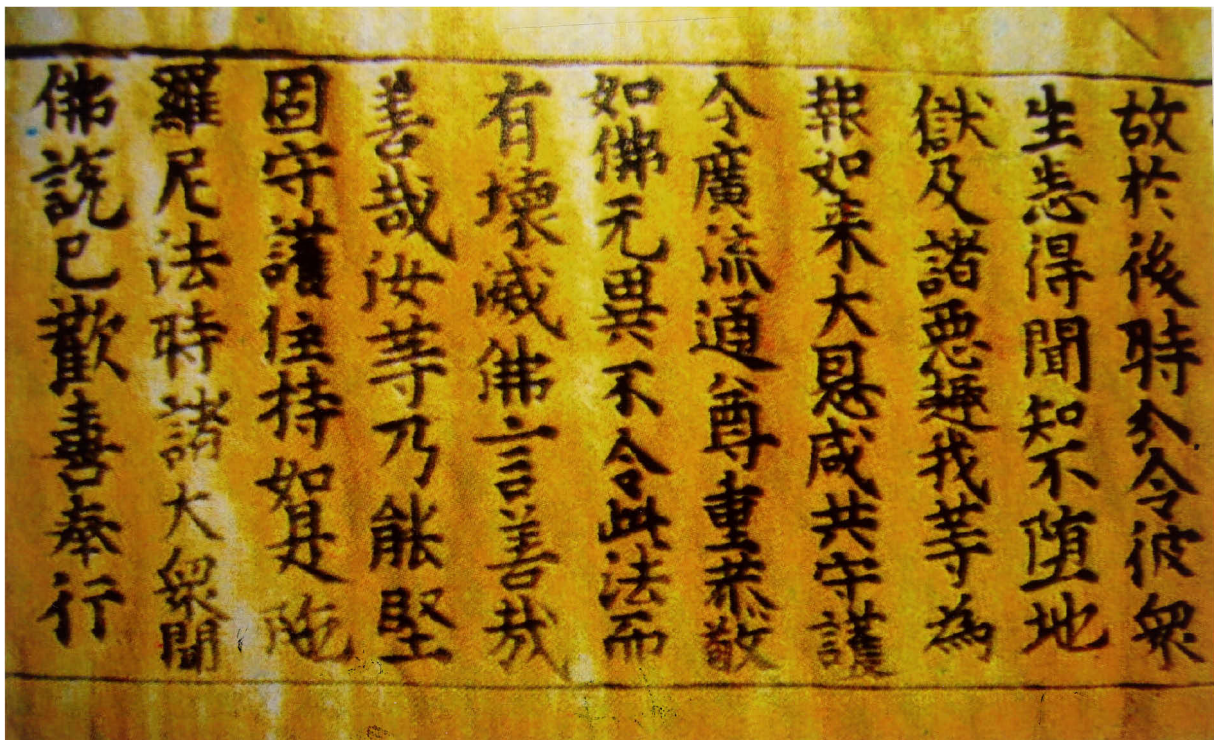 故於後時分令彼眾
生悉得聞知不墮地
獄及諸惡趣我等為
報如来大恩咸共守護
令廣流通尊重恭敬
如佛无異不令此法而
有壞滅佛言善哉
善哉汝等乃能堅
固守護住持如是陁
羅尼法時諸大眾聞
佛説已歡喜奉行